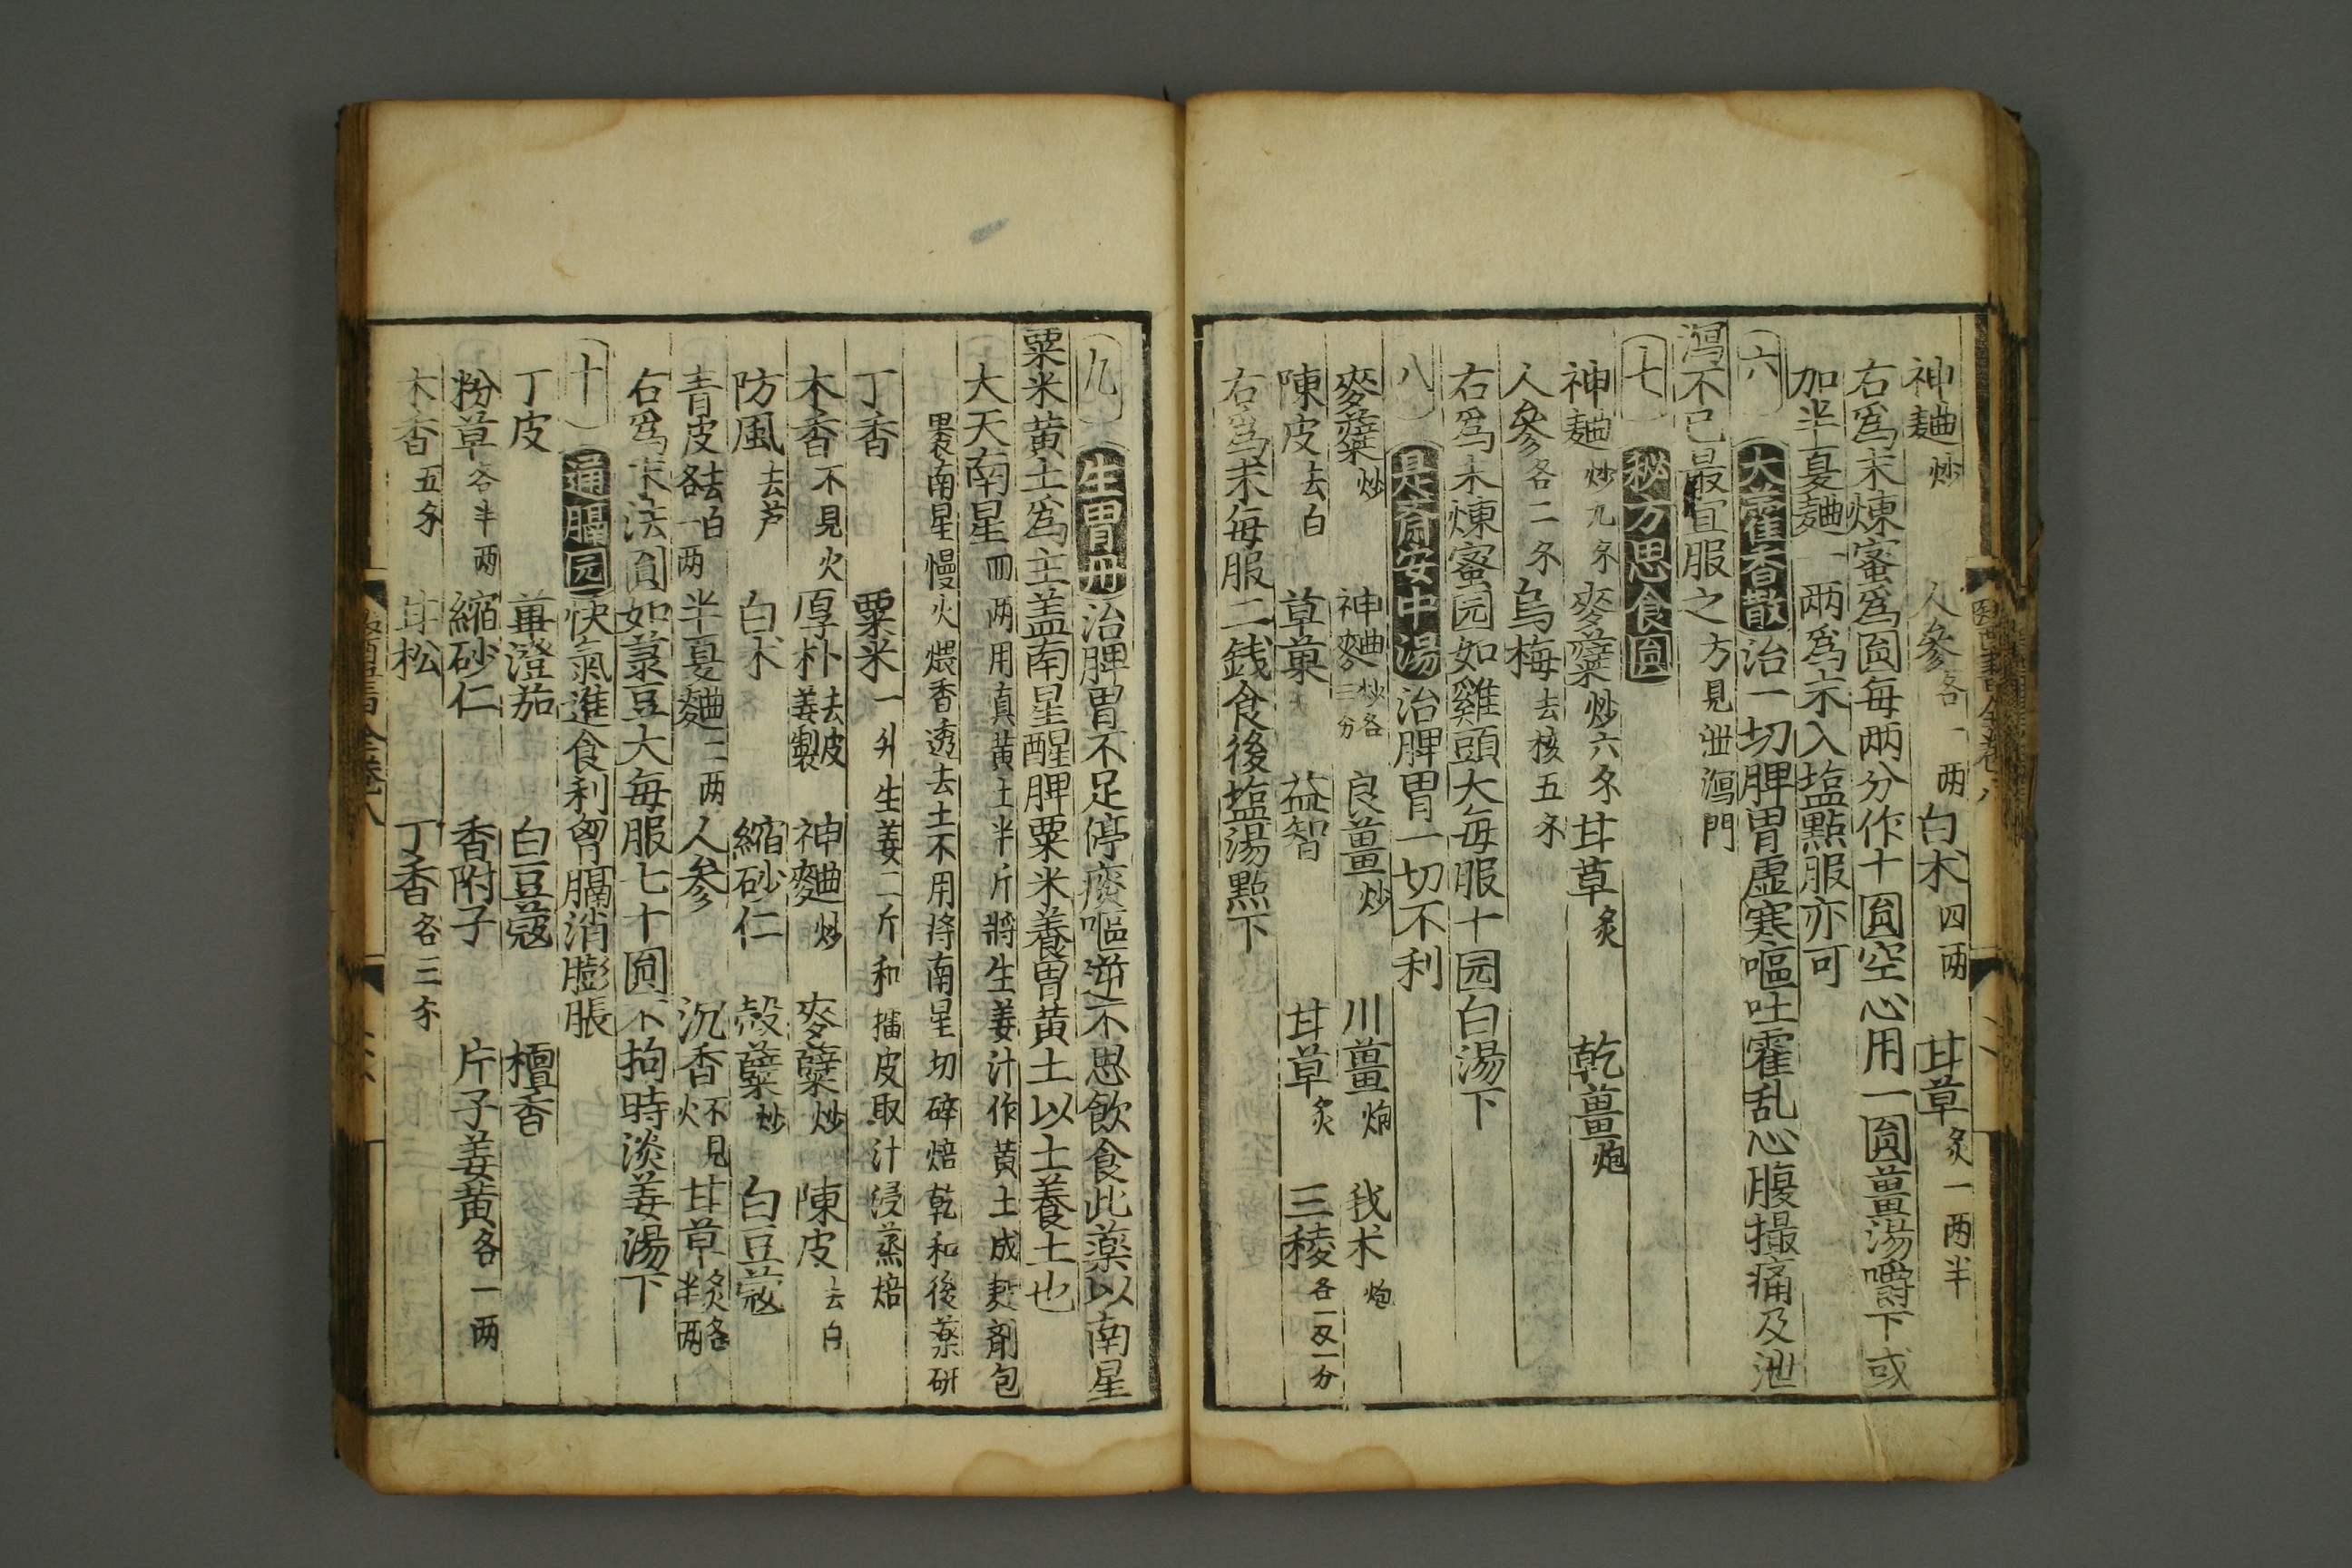 神麯炒　人參各一两　白术四两　甘草炙一两半
右爲末煉蜜爲圎每两分作十圎空心用一圎薑湯嚼下或
加半夏麯一两爲末入塩點服亦可
六　大藿香散　治一切脾胃虚寒嘔吐霍乱心腹撮痛及泄
瀉不已最宜服之方見泄瀉門
七　秘方思食圎
神麯炒九𠆤　麥蘗炒六𠆤　甘草炙　乾薑炮
人參各二𠆤　烏梅去核五𠆤
右爲末煉蜜园如雞頭大每服十园白湯下
八　是齋安中湯　治脾胃一切不利
麥蘗炒　神麯炒各三分　良薑炒　川薑炮　我术炮
陳皮去白　草菓　益智　甘草炙　三稜各一𠬧一分
右爲末每服二銭食後塩湯點下
九　生胃丹　治脾胃不足停痰嘔逆不思飲食此薬以南星
粟米黄土爲主盖南星醒脾粟米養胃黄土以土養土也
大天南星四两用真黄土半斤將生姜汁作黄土成麪劑包
褁南星慢火煨香透去土不用將南星切碎焙乾和後薬研
丁香　粟米一升生姜二斤和擂皮取汁浸蒸焙
木香不見火　厚朴去皮姜製　神麯炒　麥蘗炒　陳皮去白
防風去芦　白术　縮砂仁　殼蘗炒　白豆蔻
青皮去白各一两　半夏麯二两　人參　沉香不見火　甘草炙各半两
右爲末法圎如菉豆大每服七十圎不拘時淡姜湯下
十　通膈园　快氣進食利胷膈消膨脹
丁皮　蓽澄茄　白豆蔻　檀香
粉草各半两　縮砂仁　香附子　片子姜黄各一两
木香五𠆤　甘松　丁香各三𠆤